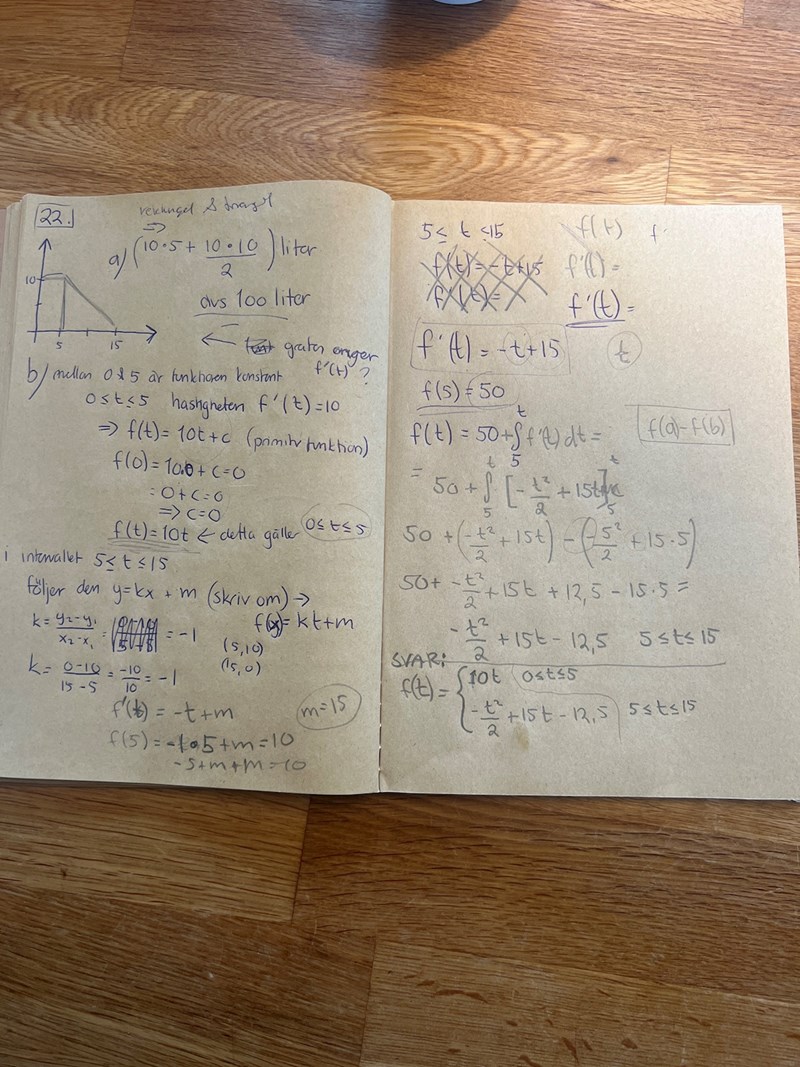 22.
rektangel & triangel
⇒
a) (10·5 + 10·10/2) liter
dvs 100 liter
10
5 15
← grafen anger f'(t) ?
b) mellan 0 & 5 är funktionen konstant
0 ≤ t ≤ 5 hastigheten f'(t) = 10
⇒ f(t) = 10t + c (primitiv funktion)
f(0) = 10·0 + c = 0
= 0 + c = 0
⇒ c = 0
f(t) = 10t ← detta gäller 0 ≤ t ≤ 5
i intervallet 5 ≤ t ≤ 15
följer den y = kx + m (skriv om) →
f(x) = kt + m
k = y₂-y₁/x₂-x₁ = = -1
(5,10)
(15,0)
k = 0-10/15-5 = -10/10 = -1
f'(t) = -t + m
m = 15
f(5) = -1·5 + m = 10
-5 + m + m = 10
5 ≤ t ≤ 15 f(t) f'
f(t) = -t + 15 f'(t) =
f(t) = f'(t) =
f'(t) = -t + 15 t
f(5) = 50
f(t) = 50 + ∫₅ᵗ f'(t) dt = f(a) - f(b)
= 50 + ∫₅ᵗ [-t²/2 + 15t]₅ᵗ
50 + (-t²/2 + 15t) - (-5²/2 + 15·5)
50 + -t²/2 + 15t + 12,5 - 15·5 =
-t²/2 + 15t - 12,5 5 ≤ t ≤ 15
SVAR:
f(t) = { 10t 0 ≤ t ≤ 5
-t²/2 + 15t - 12,5 5 ≤ t ≤ 15